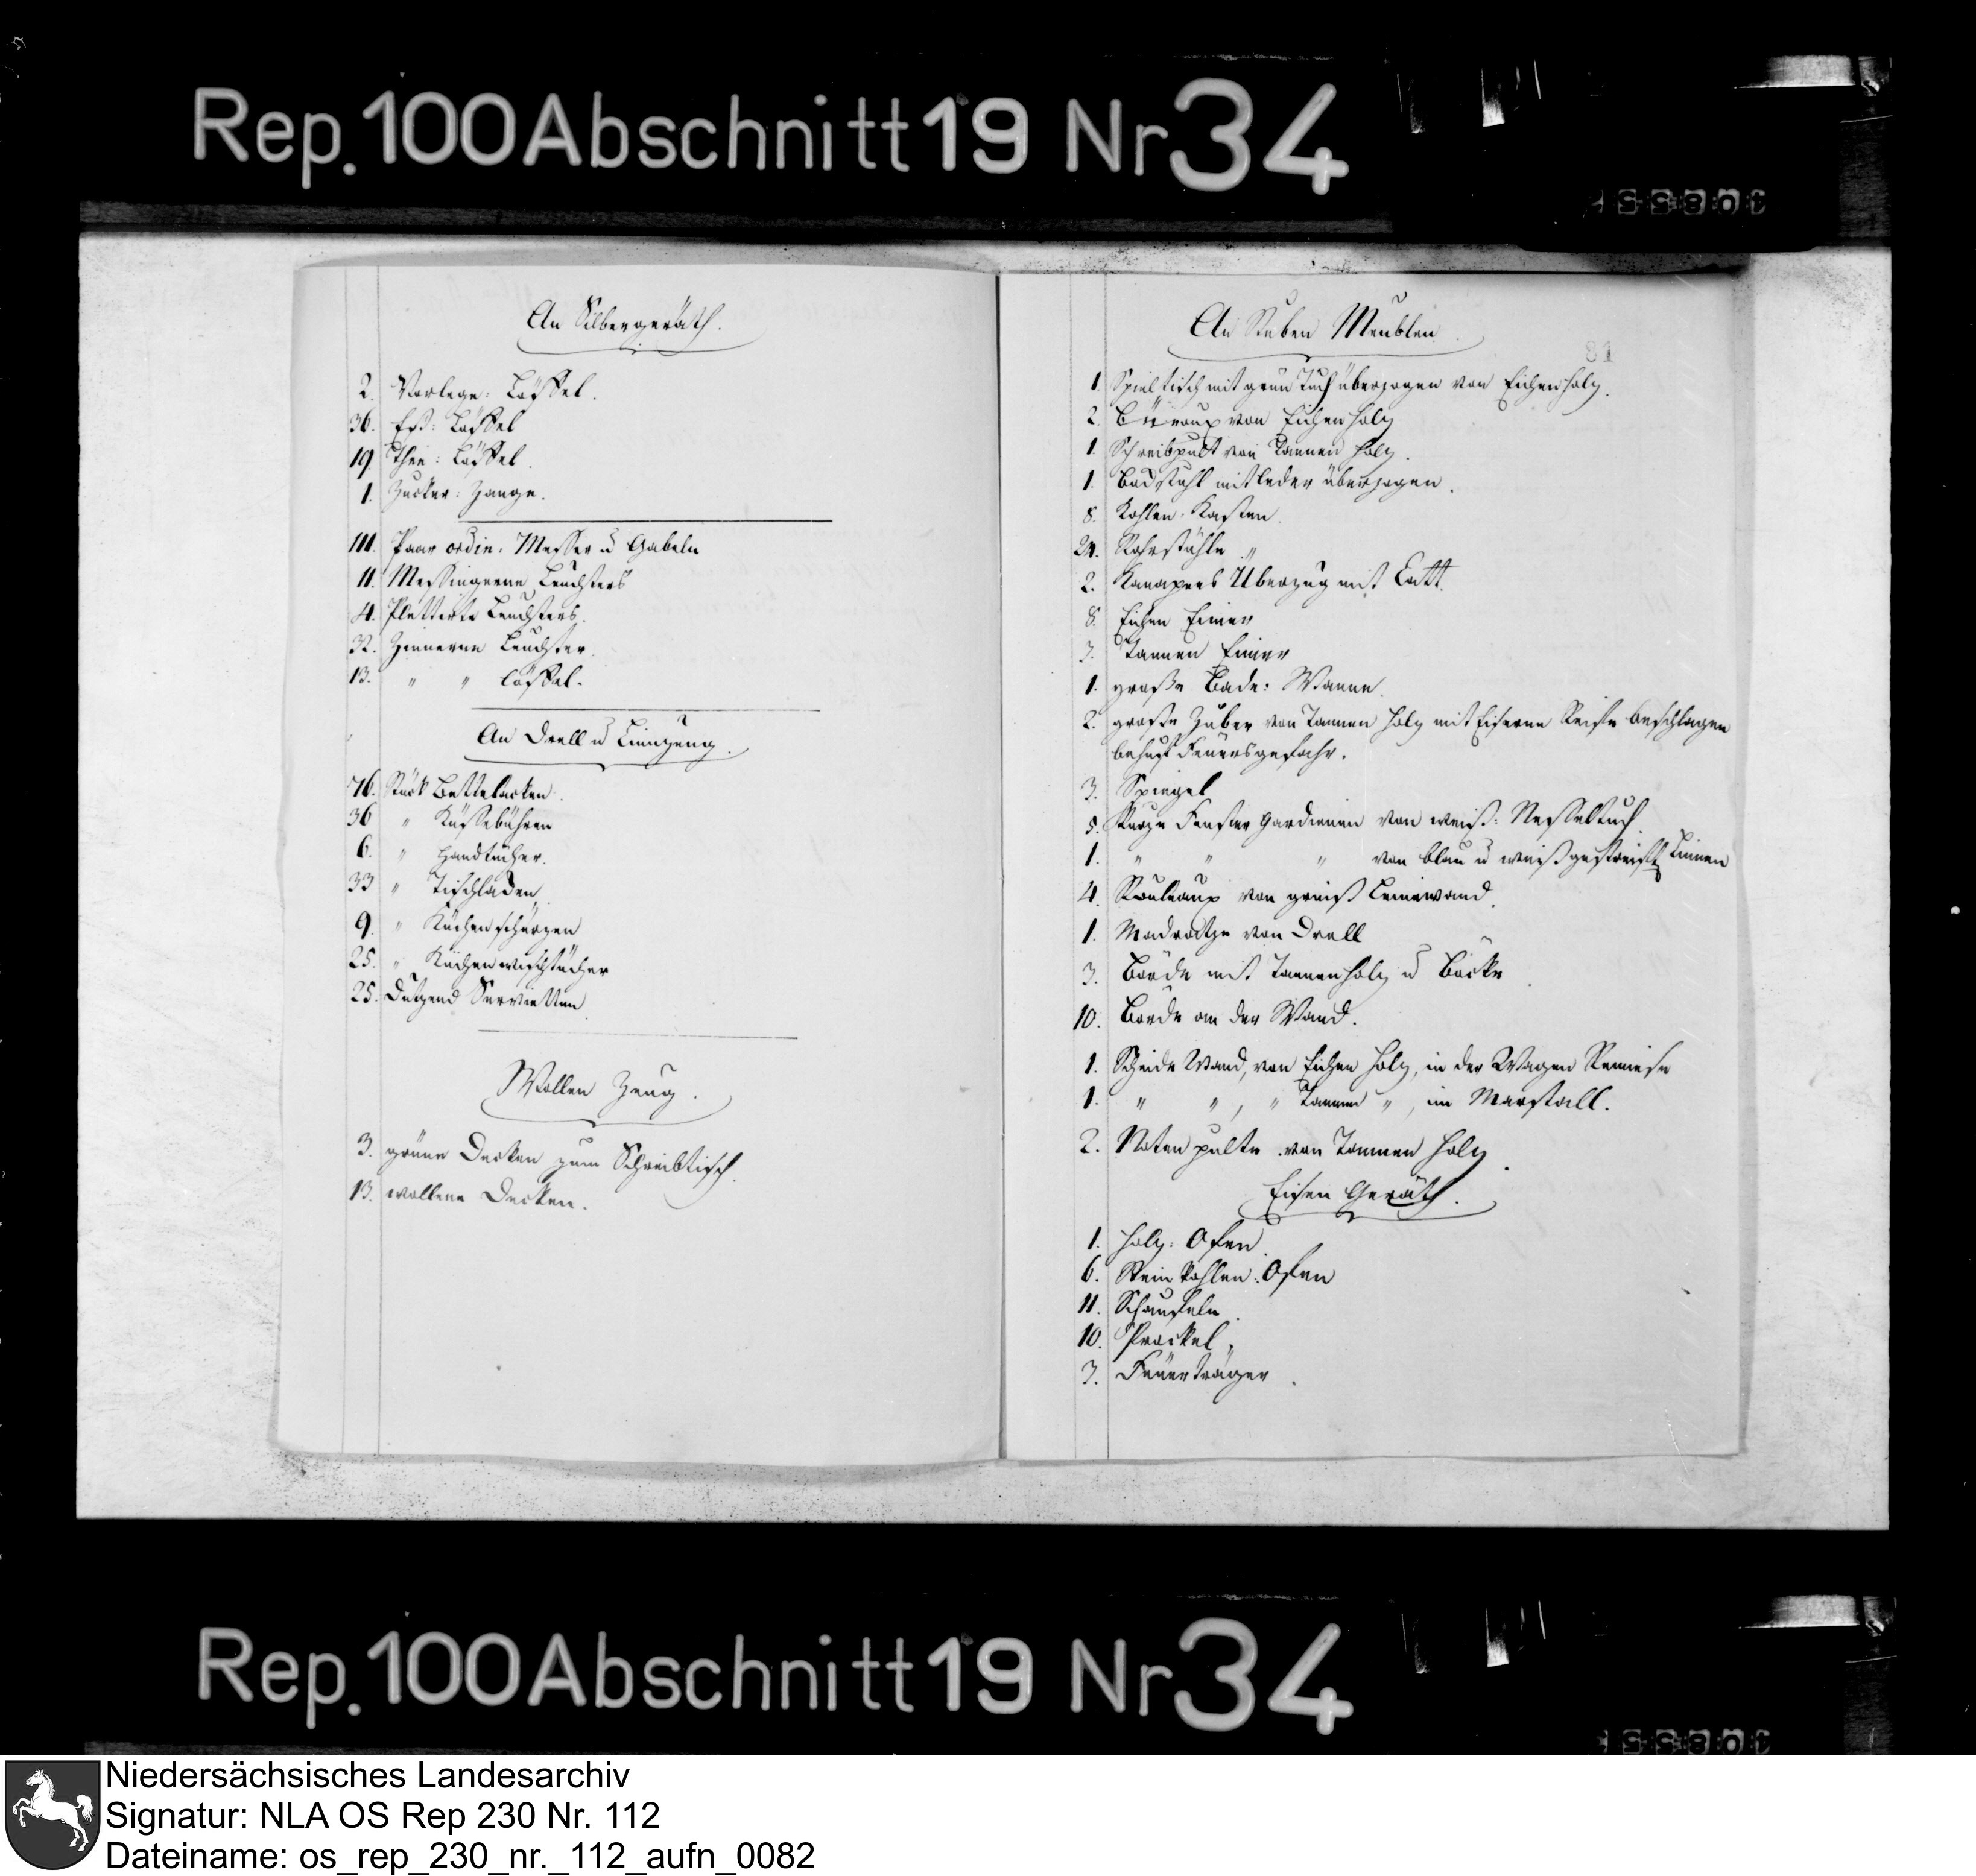 Rep. 100 Abschnitt 19 Nr 34
An Silbergeräth.
2. Vorlege: Löffel.
36. Eß: Löffel
19. Thee: Löffel.
1. Zucker: Zange.
111. Paar ordin: Messer u Gabeln
11. Messingerne Leuchters
4. Plettirte Leuchters.
32. Zinnerne Leuchter.
13. " " Löffel.
An Drell u Linnzeug.
76. Stück Bettelacken.
36 " Küssebühren
6. " Handtücher.
33 " Tischladen
9. " Küchenschürzen
25. " Küchenwischtücher
25. Dutzend Servietten
Wollen Zeug.
3. grüne Decken zum Schreibtisch.
13. wollene Decken.
An Stuben Meublen.
81
1. Spieltisch mit grün Tuch überzogen von Eichenholz.
2. Büreaux von Eichenholz
1. Schreibpult von Tannen Holz.
1. Badstuhl mit Leder überzogen.
8. Kohlen: Kasten.
24. Rohrstühle "
2. Kanapees Überzug mit Catt.
8. Eichen Eimer
3. Tannen Eimer
1. große Bade: Wanne.
2. große Zuber von Tannen Holz mit Eiserne Reife beschlagen
behuf Feuersgefahr.
3. Spiegel
5. Kurze Fenster Gardienen von weiß: Nesseltuch
1. " " " von blau u weiß gestreift Linnen
4. Rouleaux von greiß Leinewand.
1. Madratze von Drell
3. Börde mit Tannenholz u Böcke
10. Börde an der Wand.
1. Scheide Wand, von Eichen Holz, in der Wagen Remiese
1. " ", " Tannen ", im Marstall.
2. Noten pulte von Tannen Holz.
Eisen Geräth.
1. Holz: Ofen
6. Steinkohlen: Ofen
11. Schaufeln.
10. Prockel.
3. Feuerträger.
Rep. 100 Abschnitt 19 Nr 34
Niedersächsisches Landesarchiv
Signatur: NLA OS Rep 230 Nr. 112
Dateiname: os_rep_230_nr._112_aufn_0082